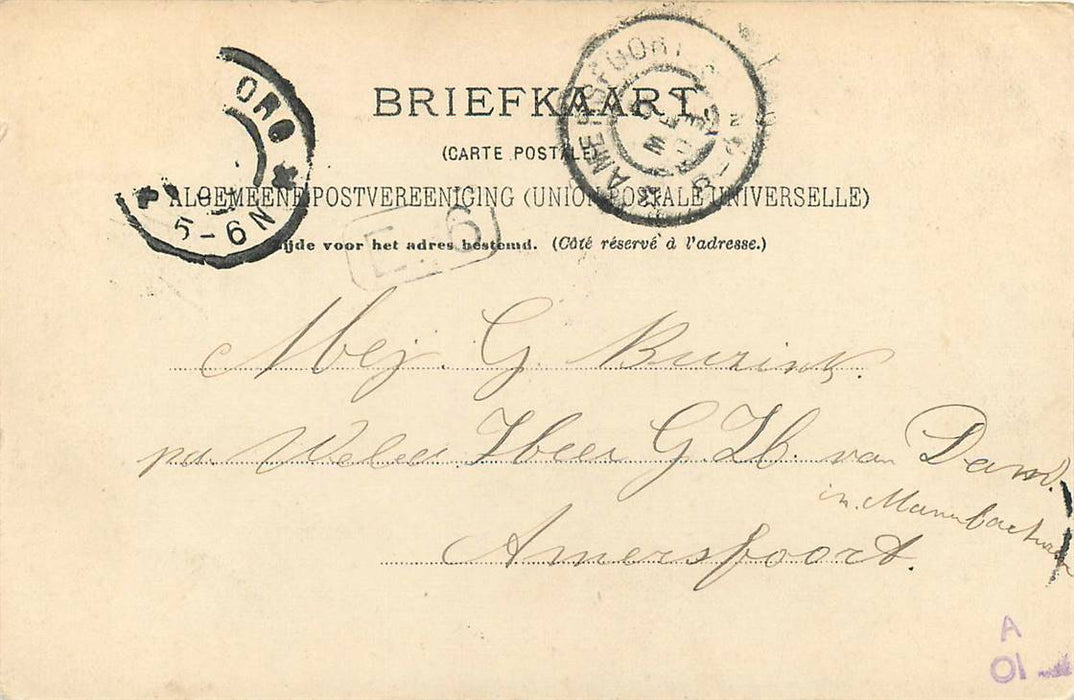 BRIEFKAART.
(CARTE POSTALE)
ALGEMEENE POSTVEREENIGING (UNION POSTALE UNIVERSELLE)
Zijde voor het adres bestemd. (Côté réservé à l'adresse.)
ORG
5-6N
AMERSFOORT
E. 6
Mej. G. Buzink.
pa WelEd. Heer G. H. van Dam.
in Manufacturen
Amersfoort.
A
01